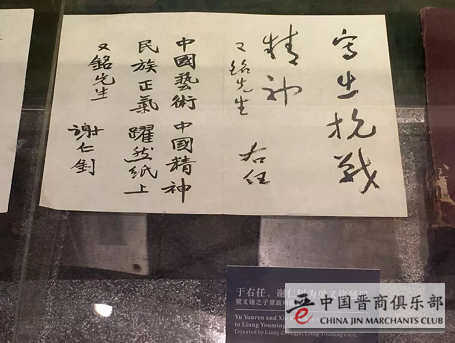 寫生抗戰
精神
又銘先生 右任
中國藝術 中國精神
民族正氣 躍然紙上
又銘先生 謝仁釗
于右任、谢仁钊为梁又铭题词
梁又铭之子梁政
Yu Youren and Xie
to Liang Youming
Donated by Liang
中国晋商俱乐部
CHINA JIN MERCHANTS CLUB